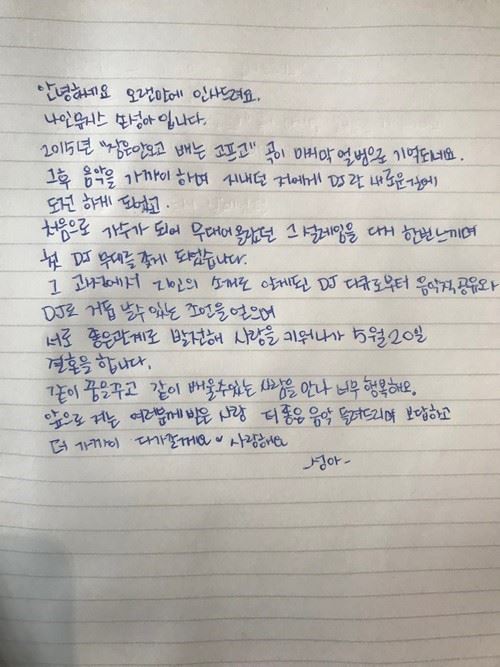 안녕하세요 오랜만에 인사드려요.
나인뮤지스 손성아 입니다.
2015년 "잠은안오고 배는 고프고" 곡이 마지막 앨범으로 기억되네요.
그후 음악을 가까이 하며 지내던 저에게 DJ란 새로운길에
도전 하게 되었고.
처음으로 가수가 되어 무대에올랐던 그 설레임을 다시 한번느끼며
첫 DJ 무대를 갖게 되었습니다.
그 과정에서 지인의 소개로 알게된 DJ 디큐로부터 음악적공유와
DJ로 거듭 날수 있는 조언을 얻으며
서로 좋은관계로 발전해 사랑을 키워나가 5월20일
결혼을 합니다.
같이 꿈을꾸고 같이 배울수있는 사람을 만나 너무 행복해요.
앞으로 저는 여러분께 받은 사랑 더 좋은 음악 들려드리며 보답하고
더 가까이 다가갈께요 사랑해요
-성아-